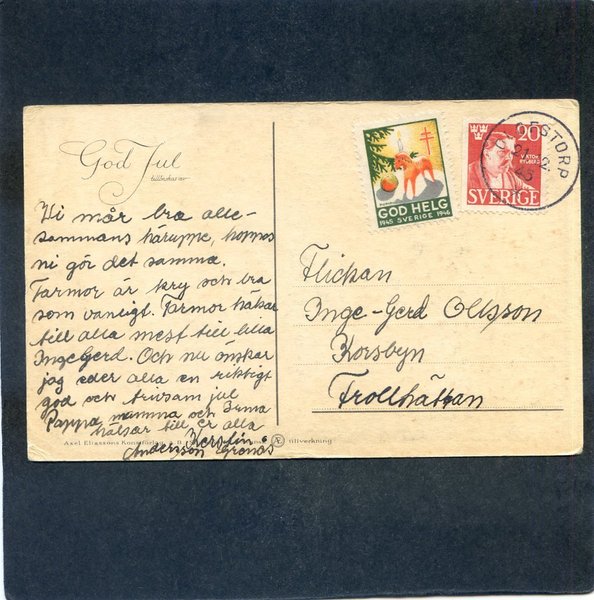 God Jul
tillönskas av
Vi mår bra alle-
sammans häruppe, hoppas
ni gör det samma.
Farmor är kry och bra
som vanligt. Farmor hälsar
till alla mest till lilla
IngeGerd. Och nu önskar
jag eder alla en riktigt
god och trivsam jul
Pappa, mamma och
hälsar till er alla
Kerstin
Andersson Grenås
Axel Eliassons Konstförlag A.B.
tillverkning
GOD HELG
1945 SVERIGE 1946
20
VIKTOR
RYDBERG
SVERIGE
Flickan
Inge-Gerd Olsson
Korsbyn
Trollhättan